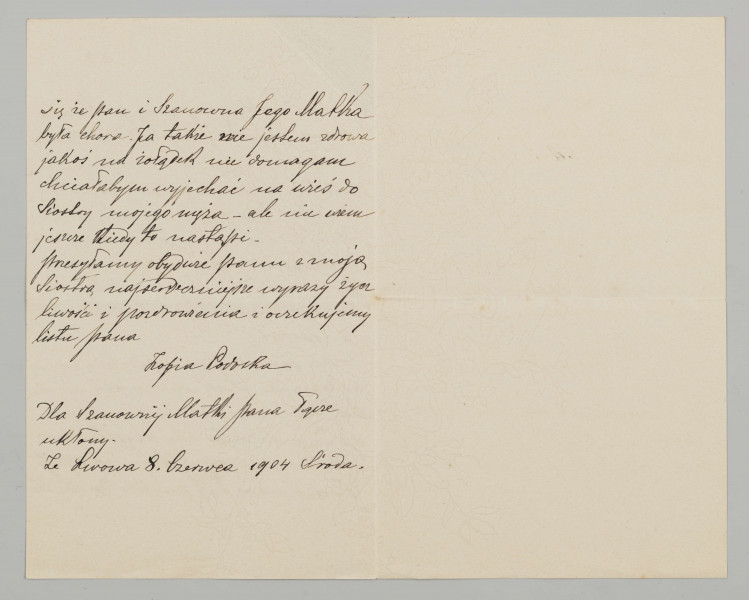 się że pan i Szanowna Jego Matka
była chora. Ja także nie jestem zdrowa
jakoś na żołądek nie domagam
chciałabym wyjechać na wieś do
Siostry mojego męża – ale nie wiem
jeszcze kiedy to nastąpi –
przesyłamy obydwie panu z moją
Siostrą najserdeczniejsze wyrazy życz
liwości i pozdrowienia i oczekujemy
listu pana
Zofia Podoska
Dla Szanownej Matki pana łącze
ukłony.
Ze Lwowa 8. Czerwca 1904 Środa.